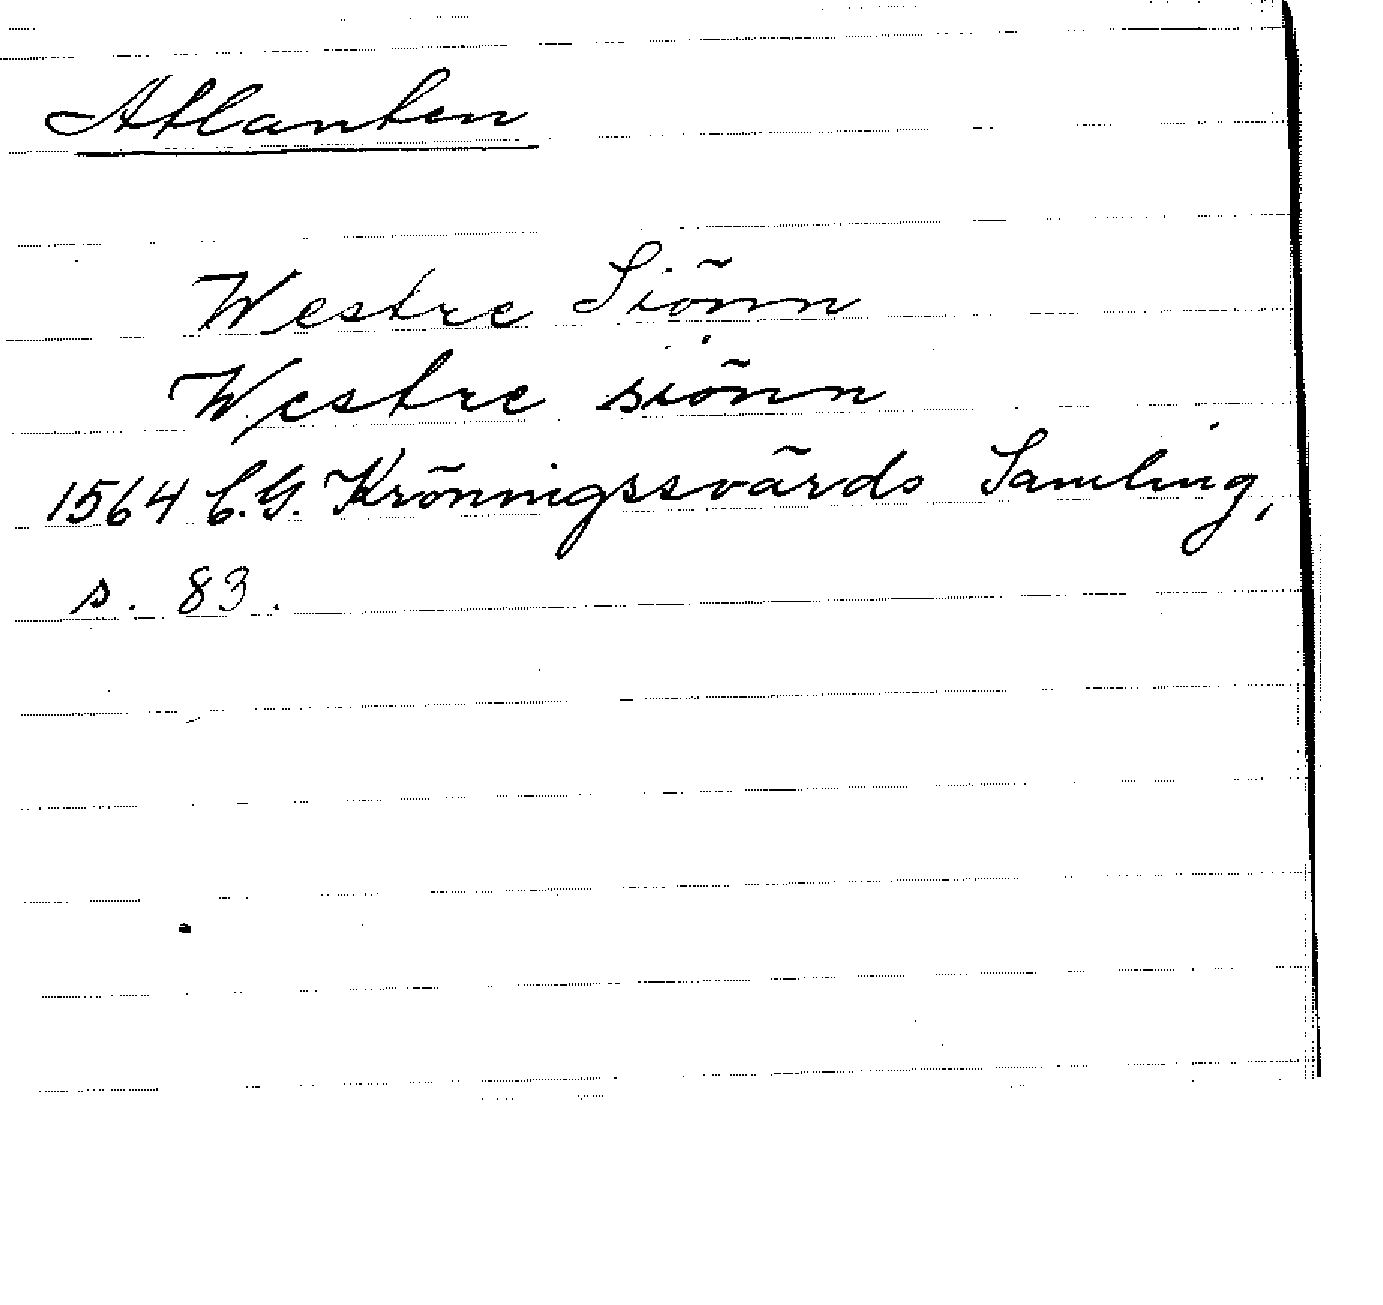 Atlanten
Westre Siönn
Westre siönn
1564 C.G. Kröningssvärds Samling,
s. 83.